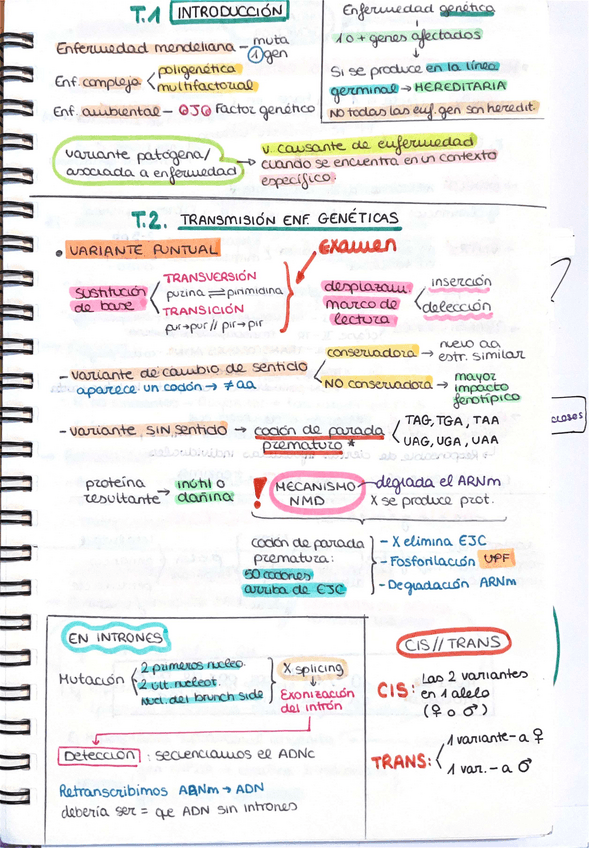 T.1 INTRODUCCIÓN
Enfermedad mendeliana - muta
1 gen
Enf. compleja
poligenética
multifactorial
Enf. ambiental - OJO Factor genético
Enfermedad genética
1 o + genes afectados
Si se produce en la línea
germinal → HEREDITARIA
No todas las enf. gen son heredit.
variante patógena/
asociada a enfermedad
v. causante de enfermedad
cuando se encuentra en un contexto
específico.
T.2. TRANSMISIÓN ENF. GENÉTICAS
• VARIANTE PUNTUAL
Examen
sustitución
de base
TRANSVERSIÓN
purina ⇌ pirimidina
TRANSICIÓN
pur→pur // pir→pir
desplazam.
marco de
lectura
inserción
delección
- variante de cambio de sentido
aparece un codón → ≠ aa
conservadora → nuevo aa
estr. similar
NO conservadora → mayor
impacto
fenotípico
- variante SIN sentido → codón de parada
prematuro *
TAG, TGA, TAA
UAG, UGA, UAA
proteína
resultante → inútil o
dañina
! MECANISMO
NMD
degrada el ARNm
X se produce prot.
codón de parada
prematura:
50 codones
arriba de EJC
- X elimina EJC
- Fosforilación UPF
- Degradación ARNm
EN INTRONES
Mutación
2 primeros nucleo.
2 últ. nucleot.
Nucl. del brunch side
X splicing
↓
Exonización
del intrón
Detección: secuenciamos el ADNc
Retranscribimos ARNm → ADN
debería ser = que ADN sin intrones
CIS // TRANS
CIS: Las 2 variantes
en 1 alelo
(♀ o ♂)
TRANS:
1 variante - a ♀
1 var. - a ♂